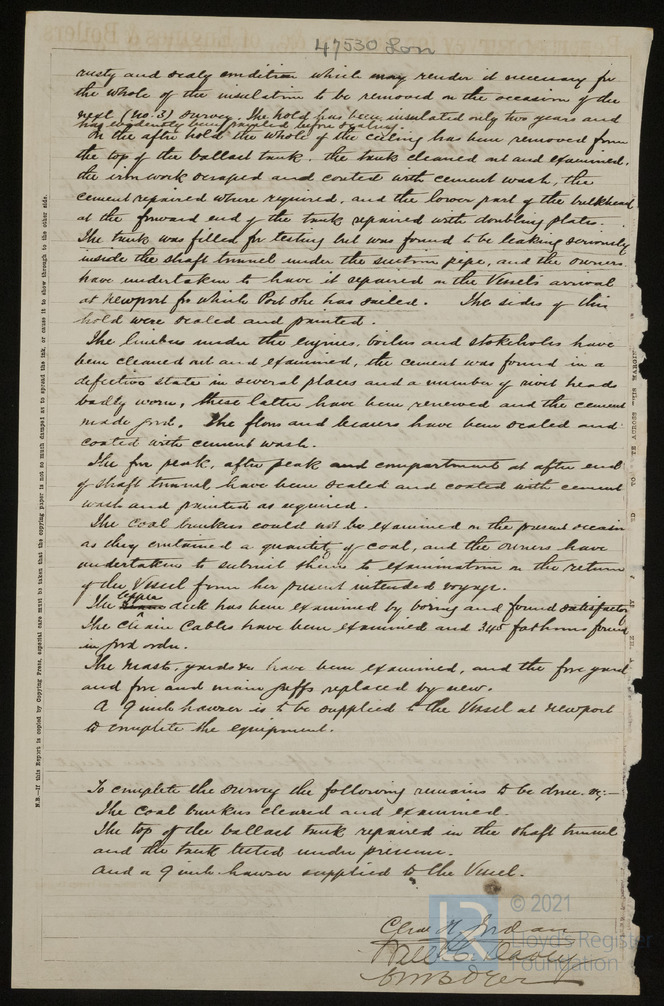 47530 Lon
rusty and scaly condition which may render it necessary for
the whole of the insulation to be removed on the occasion of the
next (No. 3) survey. The hold has been insulated only two years and
has evidently been painted before
In the after hold the whole of the ceiling has been removed from
the top of the ballast tank. the tank cleaned out and examined,
the iron work scraped and coated with cement wash, the
cement repaired where required, and the lower part of the bulkhead
at the forward end of the tank repaired with doubling plates.
The tank was filled for testing but was found to be leaking seriously
inside the shaft tunnel under the suction pipe, and the owners
have undertaken to have it repaired on the Vessel's arrival
at Newport for which Port she has sailed. The sides of this
hold were scaled and painted.
The limbers under the engines, boilers and stokeholes have
been cleaned out and examined, the cement was found in a
defective state in several places and a number of rivet heads
badly worn, these latter have been renewed and the cement
made good. The floors and bearers have been scaled and
coated with cement wash.
The fore peak, after peak and compartment at after end
of shaft tunnel have been scaled and coated with cement
wash and painted as required.
The Coal bunkers could not be examined on the present occasion
as they contained a quantity of coal, and the owners have
undertaken to submit them to examination on the return
of the Vessel from her present intended voyage.
The upper deck has been examined by boring and found satisfactory
The Chain Cables have been examined and 345 fathoms found
in good order.
The masts, yards &c have been examined, and the fore yard
and fore and main gaffs replaced by new.
A 9 inch hawser is to be supplied to the Vessel at Newport
to complete the equipment.
To complete the survey the following remains to be done. viz:—
The coal bunkers cleared and examined.
The top of the ballast tank repaired in the shaft tunnel
and the tank tested under pressure.
And a 9 inch hawser supplied to the Vessel.
Chas H. Jordan
© 2021
Lloyd's Register
Foundation
N.B.—If this Report is copied by Copying Press, especial care must be taken that the copying paper is not so much damped as to spread the ink, or cause it to show through to the other side.